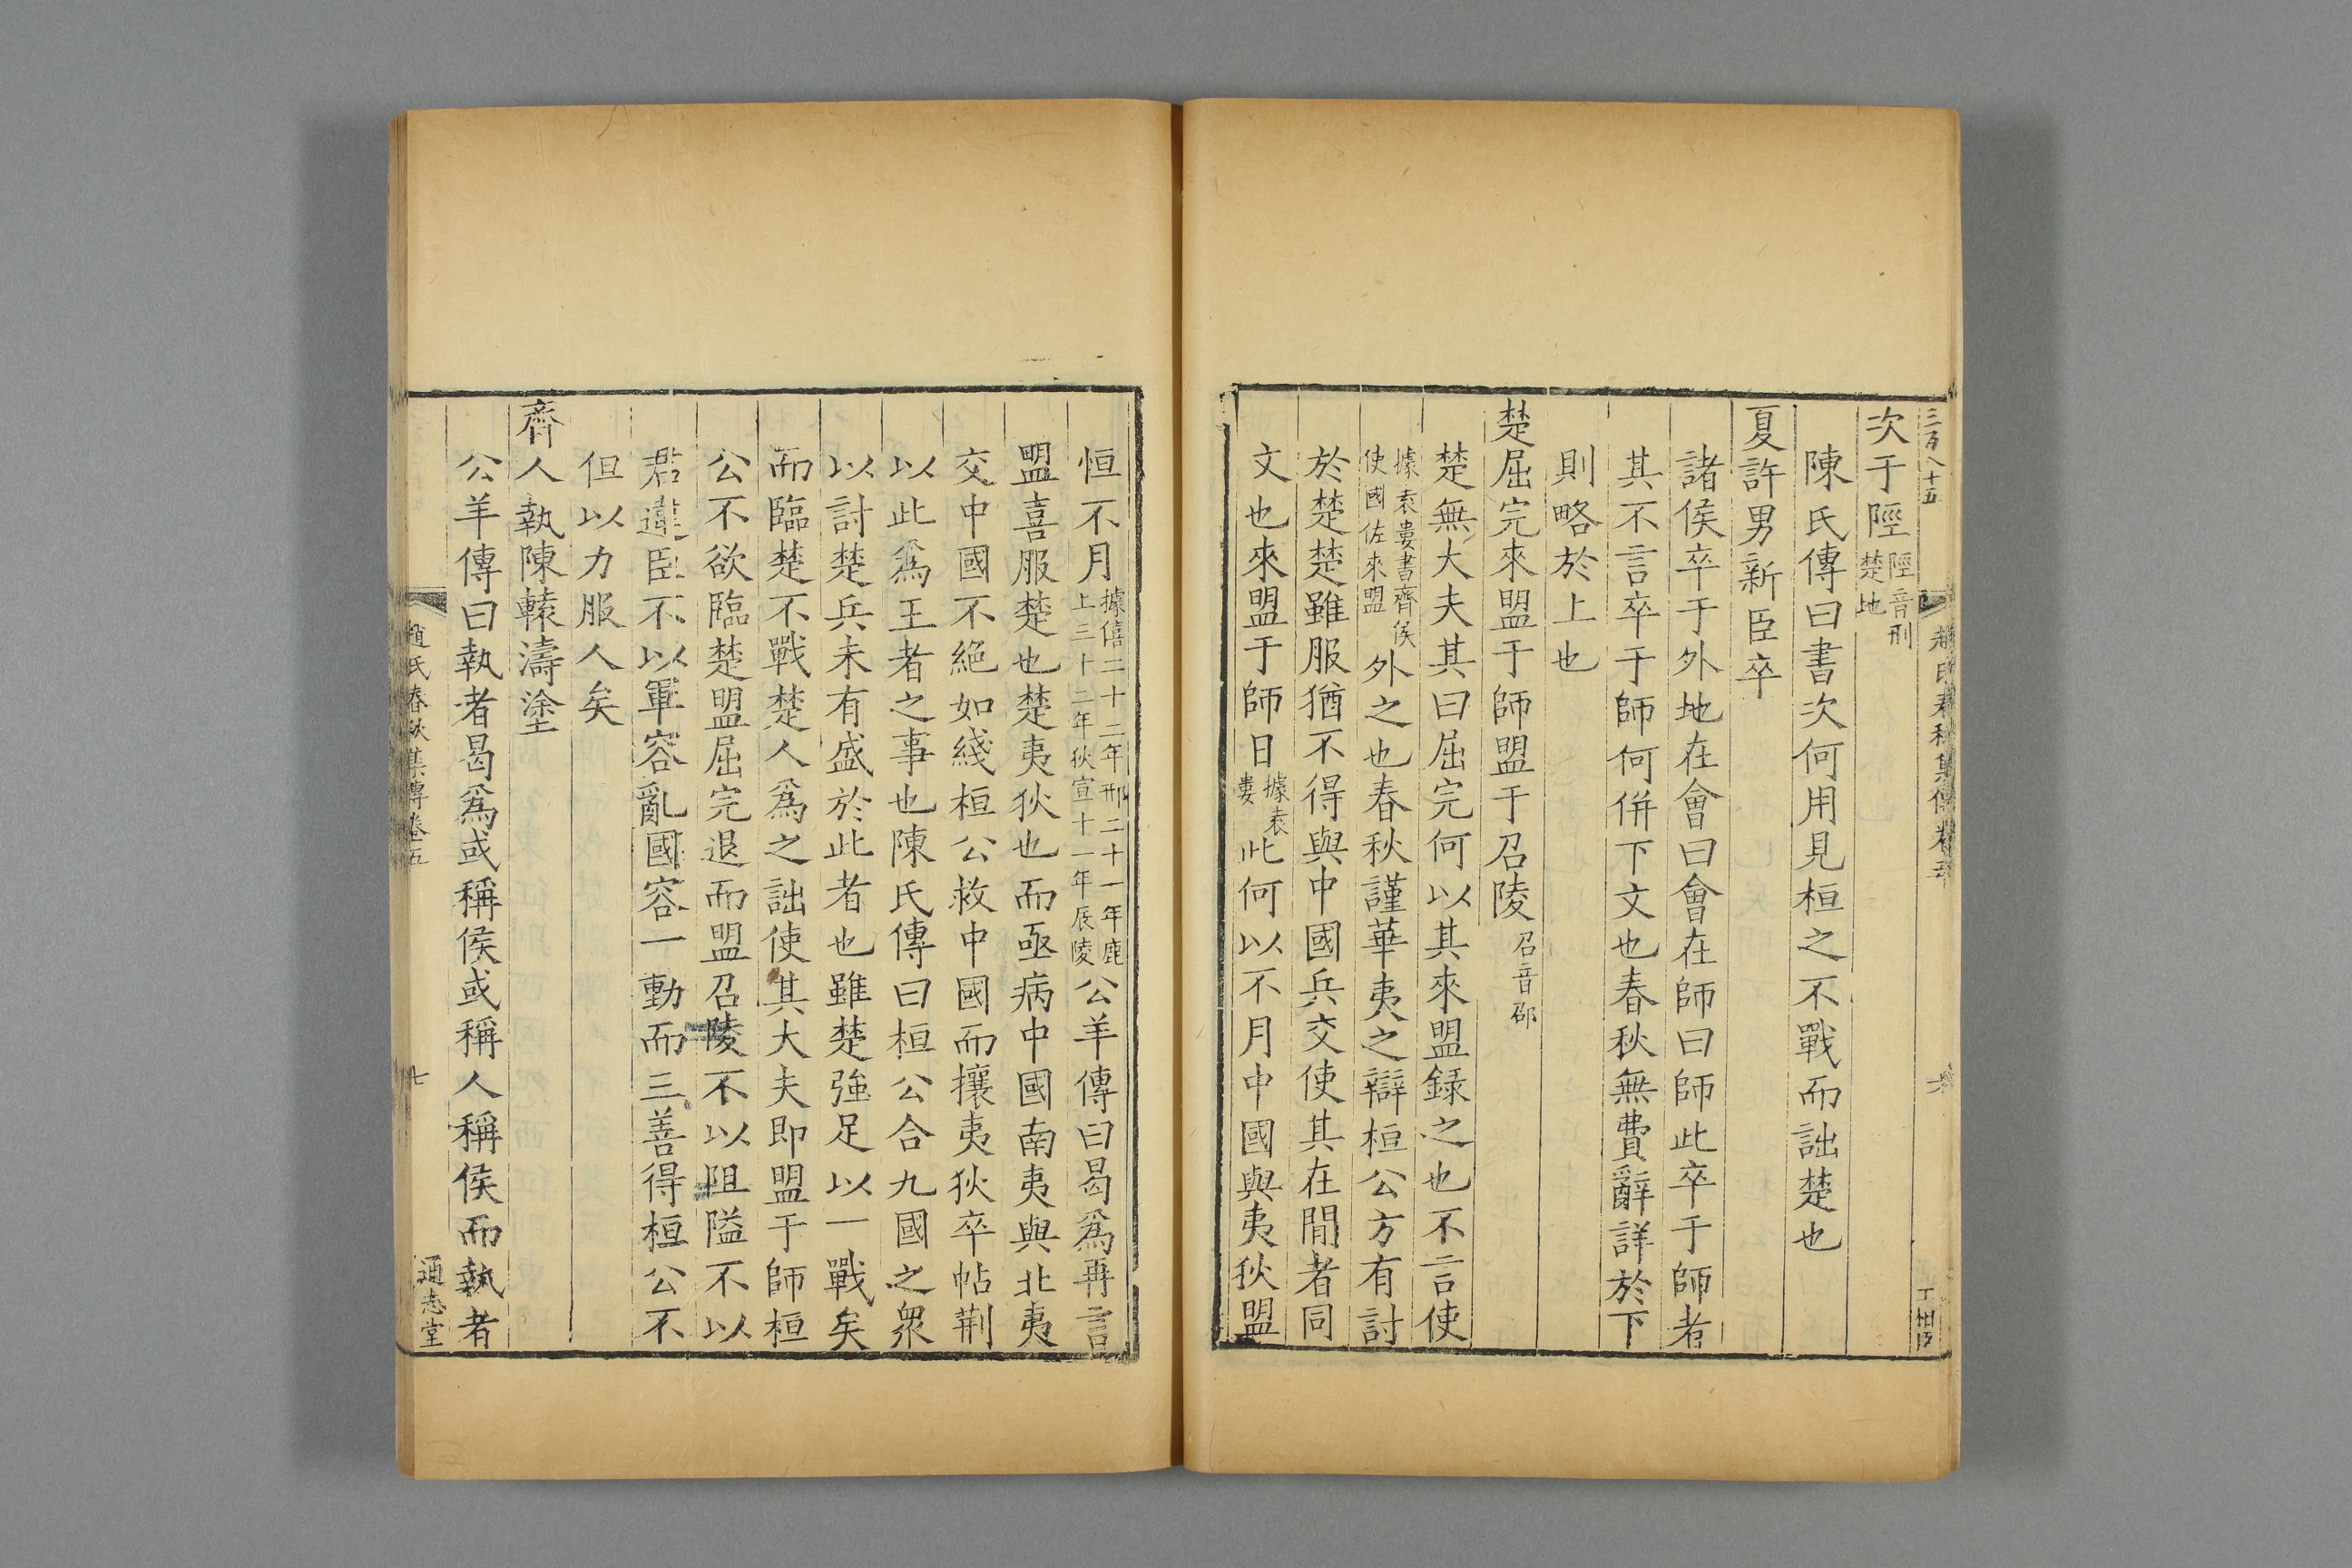 三百八十五
次于陘陘音刑楚地
陳氏傳曰書次何用見桓之不戰而詘楚也
夏許男新臣卒
諸侯卒于外地在會曰會在師曰師此卒于師者
其不言卒于師何併下文也春秋無費辭詳於下
則略於上也
楚屈完來盟于師盟于召陵召音邵
楚無大夫其曰屈完何以其來盟録之也不言使
據袁婁書齊侯使國佐來盟外之也春秋謹華夷之辯桓公方有討
於楚楚雖服猶不得與中國兵交使其在閒者同
文也來盟于師日據袁婁此何以不月中國與夷狄盟
恒不月據僖二十二年邢二十一年鹿上三十二年狄宣十一年辰陵公羊傳曰曷爲再言
盟喜服楚也楚夷狄也而亟病中國南夷與北夷
交中國不絕如綫桓公救中國而攘夷狄卒帖荆
以此爲王者之事也陳氏傳曰桓公合九國之衆
以討楚兵未有盛於此者也雖楚強足以一戰矣
而臨楚不戰楚人爲之詘使其大夫即盟于師桓
公不欲臨楚盟屈完退而盟召陵不以阻隘不以
君違臣不以軍容亂國容一動而三善得桓公不
但以力服人矣
齊人執陳轅濤塗
公羊傳曰執者曷爲或稱侯或稱人稱侯而執者
趙氏春秋集傳卷五
七
通志堂